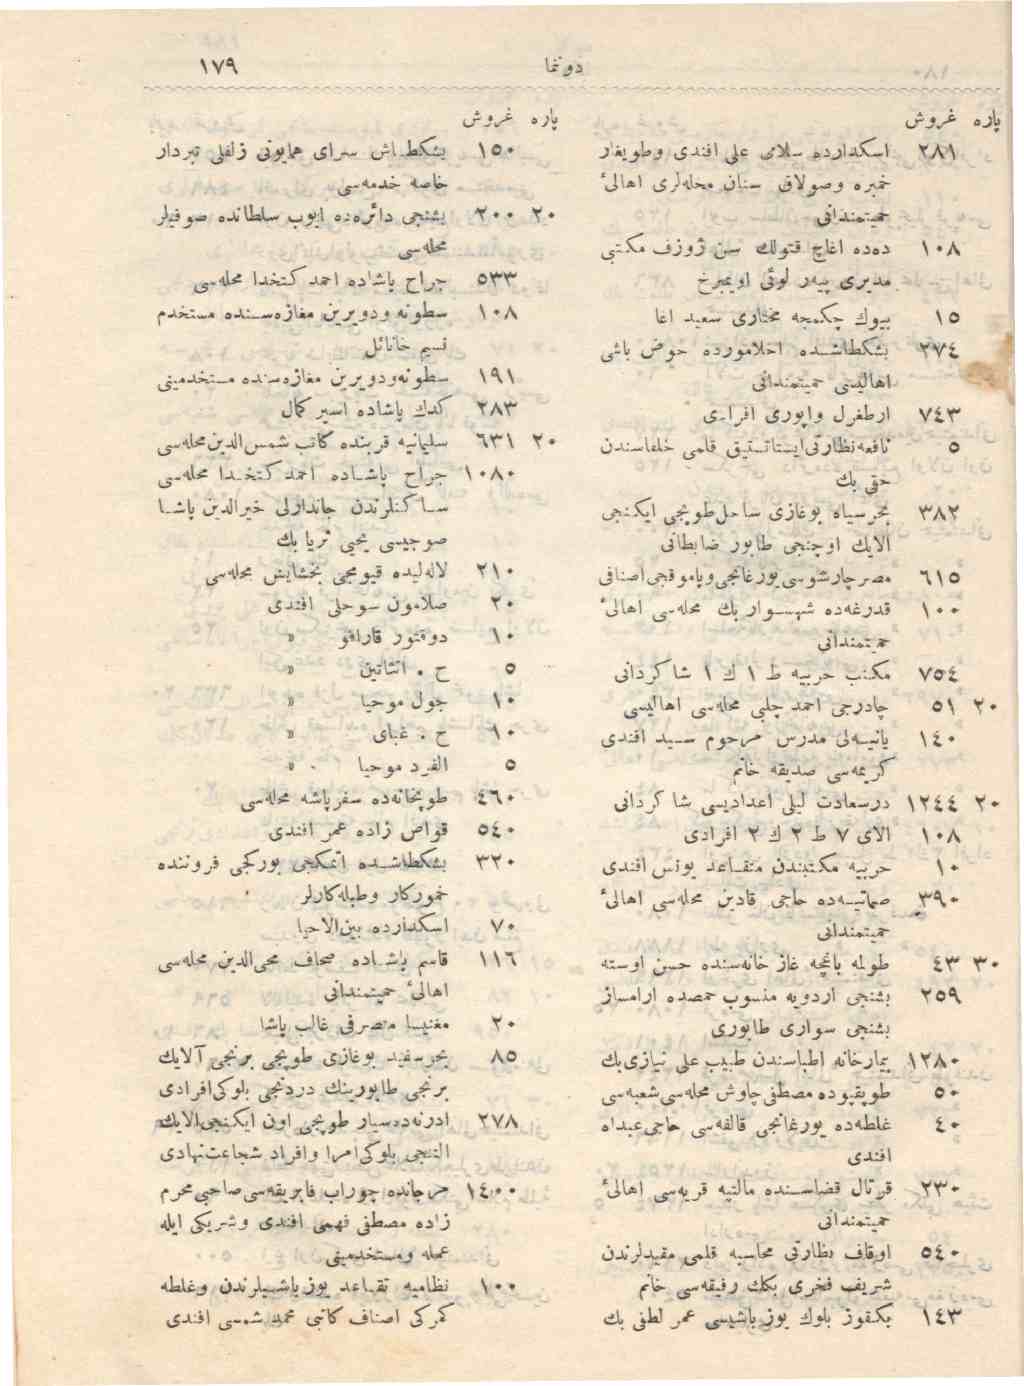 دوننما ١٧٩
پاره غروش
٢٨١ اسكدارده سلامی علی افندی وطویغار
حمزه وصولاق سنان محله‌لری اهالیٔ
حمیتمندانی
١٠٨ دده اغاج قتولك سن ژوزف مكتبی
مدیری پیه‌ر لوئی اویمبرخ
١٥ بیوك چكمجه مختاری سعید اغا
٢٧٤ بشكطاشده اخلامورده حوض باشی
اهالیسی حمیتمندانی
٧٤٣ ارطغرل واپوری افرادی
٥ نافعه نظارتی ایستاتستیق قلمی خلفاسندن
حقی بك
٣٨٢ بحرسیاه بوغازی ساحل طوپجی ایكنجی
الایك اوچنجی طابور ضابطانی
٦١٥ مصرچارشوسی یورغانجی وپاموقجی اصنافی
١٠٠ قدرغه‌ده شهسوار بك محله‌سی اهالیٔ
حمیتمندانی
٧٥٤ مكتب حربیه ط ١ ك ١ شاكردانی
٢٠ ٥١ چادرجی احمد چلبی محله‌سی اهالیسی
١٤٠ یانیه‌لی مدرس مرحوم سید افندی
كریمه‌سی صدیقه خانم
٢٠ ١٢٤٤ درسعادت لیلی اعدادیسی شاكردانی
١٠٨ الای ٧ ط ٢ ك ٢ افرادی
١٠ حربیه مكتبندن متقاعد یونس افندی
٣٩٠ صماتیه‌ده حاجی قادین محله‌سی اهالیٔ
حمیتمندانی
٣٠ ٤٣ طولمه باغچه غازخانه‌سنده حسن اوسته
٢٥٩ بشنجی اردویه منسوب حمصده ارامساز
بشنجی سواری طابوری
١٢٨٠ بیمارخانه اطباسندن طبیب علی نیازی بك
٥٠ طوپقپوده مصطفی چاوش محله‌سی شعبه‌سی
٤٠ غلطه‌ده یورغانجی قالفه‌سی حاجی عبداه
افندی
٢٣٠ قرتال قضاسنده مالتپه قریه‌سی اهالیٔ
حمیتمندانی
٥٤٠ اوقاف نظارتی محاسبه قلمی مقیدلرندن
شریف فخری بكك رفیقه‌سی خانم
١٤٣ بكقوز بلوك یوزباشیسی عمر لطفی بك
پاره غروش
١٥٠ بشكطاش سرای همایونی زلفلی تبردار
خاصه خدمه‌سی
٢٠ ٢٠٠ بشنجی دائره‌ده ایوب سلطانده صوفیلر
محله‌سی
٥٣٣ جراح پاشاده احمد كتخدا محله‌سی
١٠٨ سطونه ودویرین مغازه‌سنده مستخدم
نسیم خانائل
١٩١ سطونه‌ودویرین مغازه‌سنده مستخدمینی
٢٨٣ كدك پاشاده اسیر كمال
٢٠ ٦٣١ سلیمانیه قربنده كاتب شمس‌الدین محله‌سی
١٠٨٠ جراح پاشاده احمد كتخدا محله‌سی
ساكنلرندن جاندارلی خیرالدین پاشا
صوجیسی یحیی ثریا بك
٢١٠ لاله‌لیده قیومجی بخشایش محله‌سی
٢٠ صلامون سوحلی افندی
١٠ دوقتور قارافو »
٥ ح . انشاتین »
١٠ جول موحیا »
١٠ ح . غبای »
٥ الفرد موحیا »
٤٦٠ طوپخانه‌ده سفرپاشه محله‌سی
٥٤٠ قواص زاده عمر افندی
٣٢٠ بشكطاشده اتمكجی بوركجی فروننده
خموركار وطبله‌كارلر
٧٠ اسكدارده بین‌الاحبا
١١٦ قاسم پاشاده صحاف محی‌الدین محله‌سی
اهالیٔ حمیتمندانی
٢٠ مغنیسا متصرفی غالب پاشا
٨٥ بحرسفید بوغازی طوپجی برنجی آلایك
برنجی طابورینك دردنجی بلوكی افرادی
٢٧٨ ادرنه‌ده سیار طوپجی اون ایكنجی الایك
التنجی بلوكی امرا وافراد شجاعت‌نهادی
١٤٠٠ مرجانده چوراب فابریقه‌سی صاحبی محرم
زاده مصطفی فهمی افندی وشریكی ایله
عمله ومستخدمینی
١٠٠ نظامیه تقاعد یوزباشیلرندن وغلطه
كمركی اصناف كاتبی محمد شمسی افندی